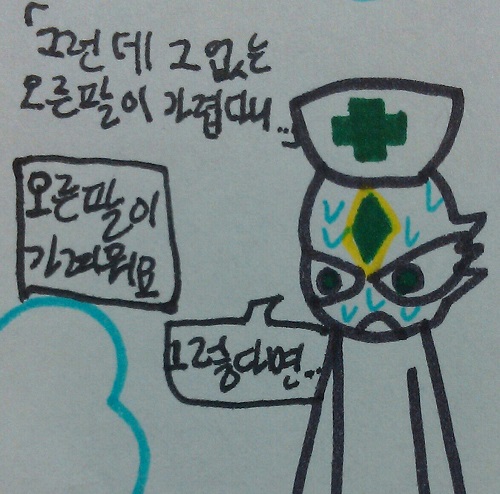 「그런데 그 없는
오른팔이 가렵다니..」
오른팔이
가려워요
그렇다면..